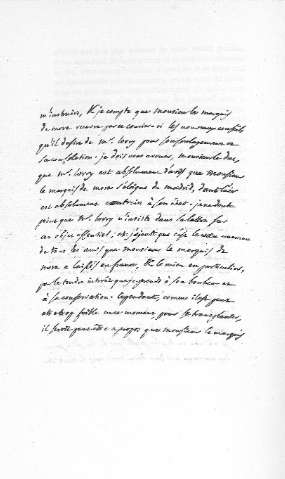 m'instruire, & je compte que monsieur le marquis
de mora recevra par ce courier-ci les nouveaux conseils
qu'il desire de mr. lorry pour son soulagement ou
sa consolation. je dois vous avouer, monsieur le duc,
que mr. lorry est absolument d'avis que monsieur
le marquis de mora s'eloigne de madrid, dont l'air
est absolument contraire à son état. je ne doute
point que mr. lorry n'insiste dans sa lettre sur
un objet essentiel, et j'ajoute que c'est le
de tous les amis que monsieur le marquis de
mora a laissés en france, & le mien en particulier,
par le tendre intérêt que je prends à son bonheur et
à sa conservation. cependant, comme il est peut
etre trop foible en ce moment pour se transplanter,
il seroit peut-être à propos que monsieur le marquis